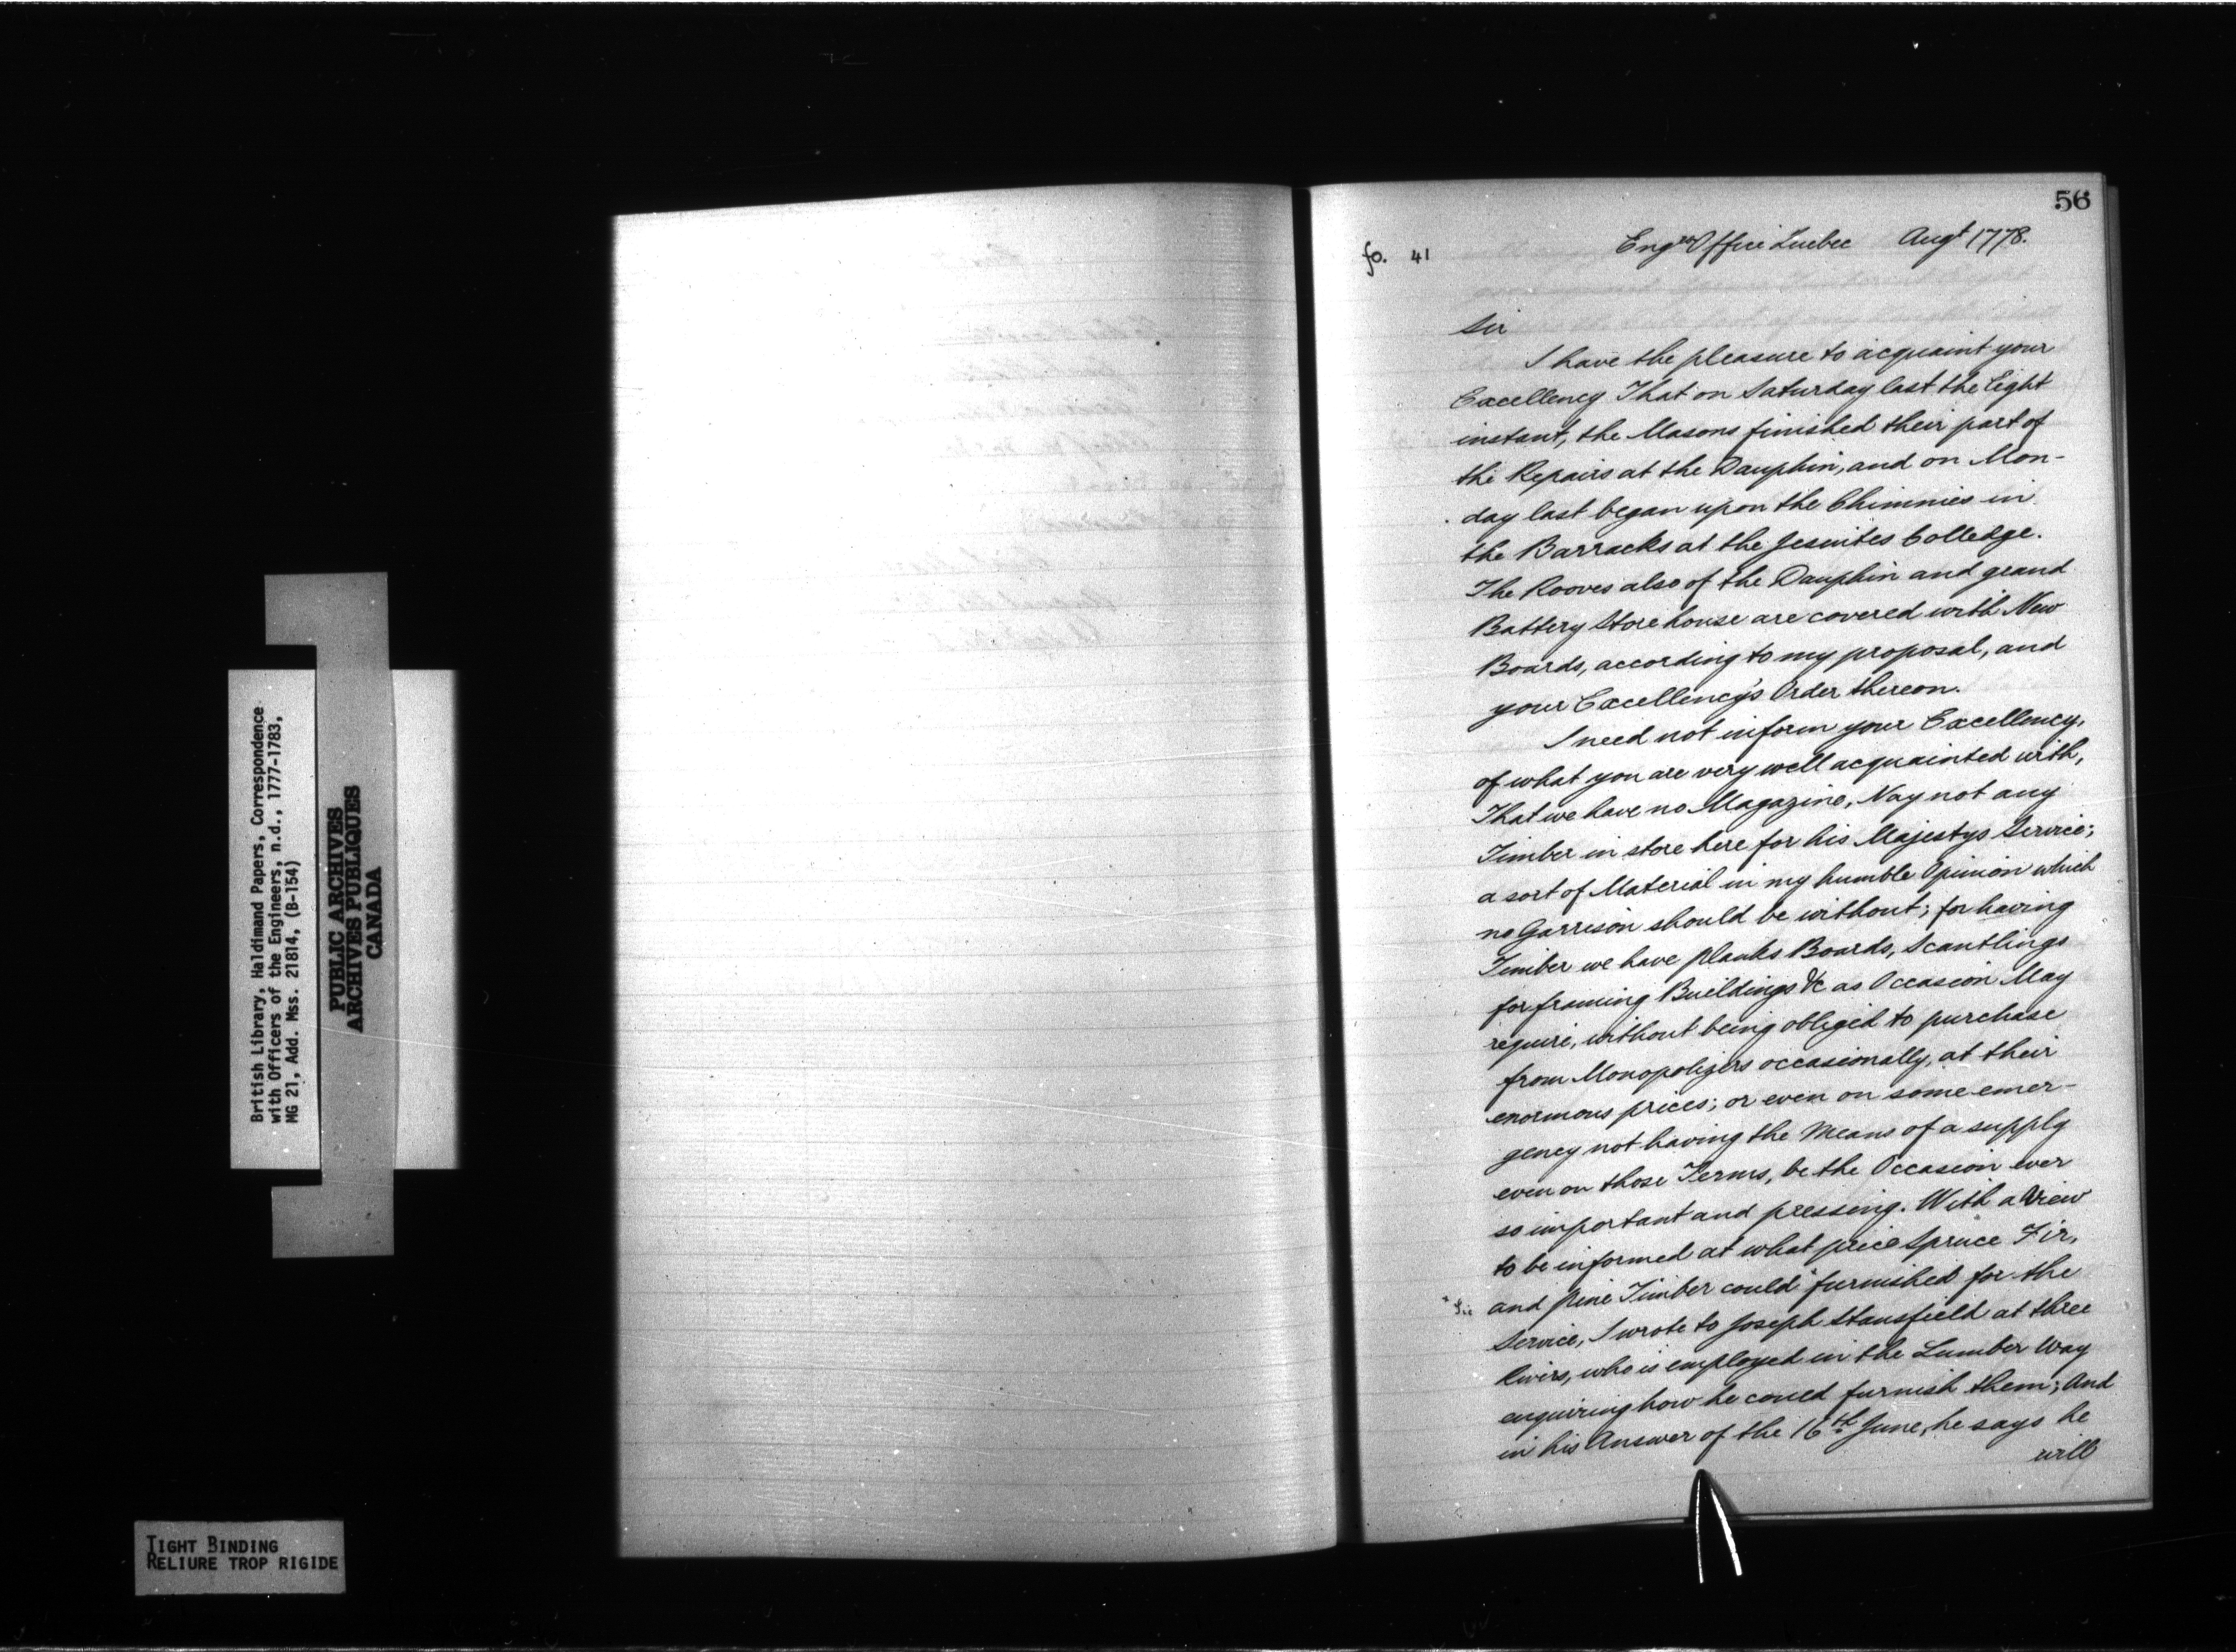 British Library, Haldimand Papers, Correspondence
with Officers of the Engineers, n.d., 1777-1783,
MG 21, Add. Mss. 21814, (B-154)
PUBLIC ARCHIVES
ARCHIVES PUBLIQUES
CANADA
TIGHT BINDING
RELIURE TROP RIGIDE
56
fo. 41
Engrs Office Quebec Augt 1778.
Sir
I have the pleasure to acquaint your
Excellency That on Saturday last the Eight
instant, the Masons finished their part of
the Repairs at the Dauphin, and on Mon-
day last began upon the Chimnies in
the Barracks at the Jesuites Colledge.
The Rooves also of the Dauphin and grand
Battery Store house are covered with New
Boards, according to my proposal, and
your Excellency's Order thereon.
I need not inform your Excellency,
of what you are very well acquainted with,
That we have no Magazine, Nay not any
Timber in store here for his Majestys Service;
a sort of Material in my humble Opinion which
no Garrison should be without; for having
Timber we have Planks Boards, Scantlings
for framing Buildings &c as Occasion May
require, without being obliged to purchase
from Monopolizers occasionally, at their
enormous prices; or even on some emer-
gency not having the Means of a supply
even on those Terms, be the Occasion ever
so important and pressing. With a View
to be informed at what price Spruce Fir,
and Pine Timber could furnished for the
* Sic
Service, I wrote to Joseph Stansfield at three
Rivers, who is employed in the Lumber Way
enquiring how he could furnish them; And
in his Answer of the 16th June, he says he
will